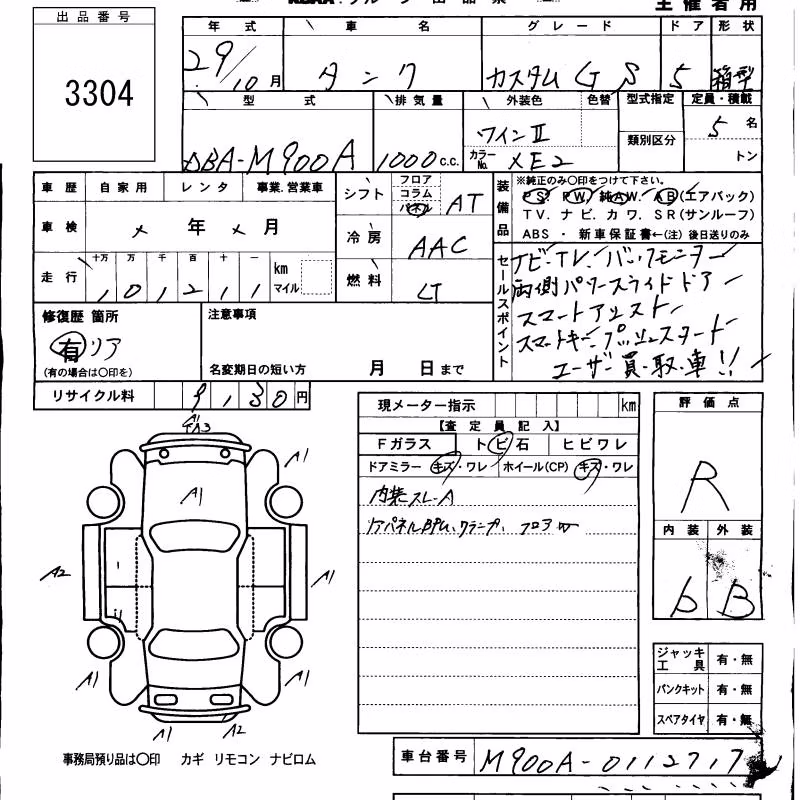 主催者用
出品番号
3304
年式 車名 グレード ドア 形状
29/10月 タンク カスタム G S 5 箱型
型式 排気量 外装色 色替 型式指定 定員・積載
DBA-M900A 1000c.c. ワインⅡ 類別区分 5名
カラーNo. XE2 トン
車歴 自家用 レンタ 事業.営業車
シフト フロア コラム パネル AT
装備品 ※純正のみ〇印をつけて下さい。
PS. PW. 純AW. AB(エアバック)
TV. ナビ. カワ. SR(サンルーフ)
ABS ・ 新車保証書←(注)後日送りのみ
車検 × 年 × 月
冷房 AAC
走行 十万 万 千 百 十 一
1 0 1 2 1 1 km マイル
燃料
セールスポイント
ナビ・TV・バックモニター
両側パワースライドドア
スマートアシスト
スマートキー. プッシュスタート
ユーザー買・取・車!!
修復歴 箇所
有 リア
(有の場合は〇印を)
注意事項
名変期日の短い方 月 日まで
リサイクル料 9130円
現メーター指示 km
【査定員記入】
Fガラス トビ石 ヒビワレ
ドアミラー キズ・ワレ ホイール(CP) キズ・ワレ
内装スレ-A
リアパネル クランプ. フロア
評価点
R
内装 外装
b B
A1
A1
A1
A2 A1
A1 A1
A1 A2
ジャッキ工具 有・無
パンクキット 有・無
スペアタイヤ 有・無
事務局預り品は〇印 カギ リモコン ナビロム
車台番号 M900A-0112717